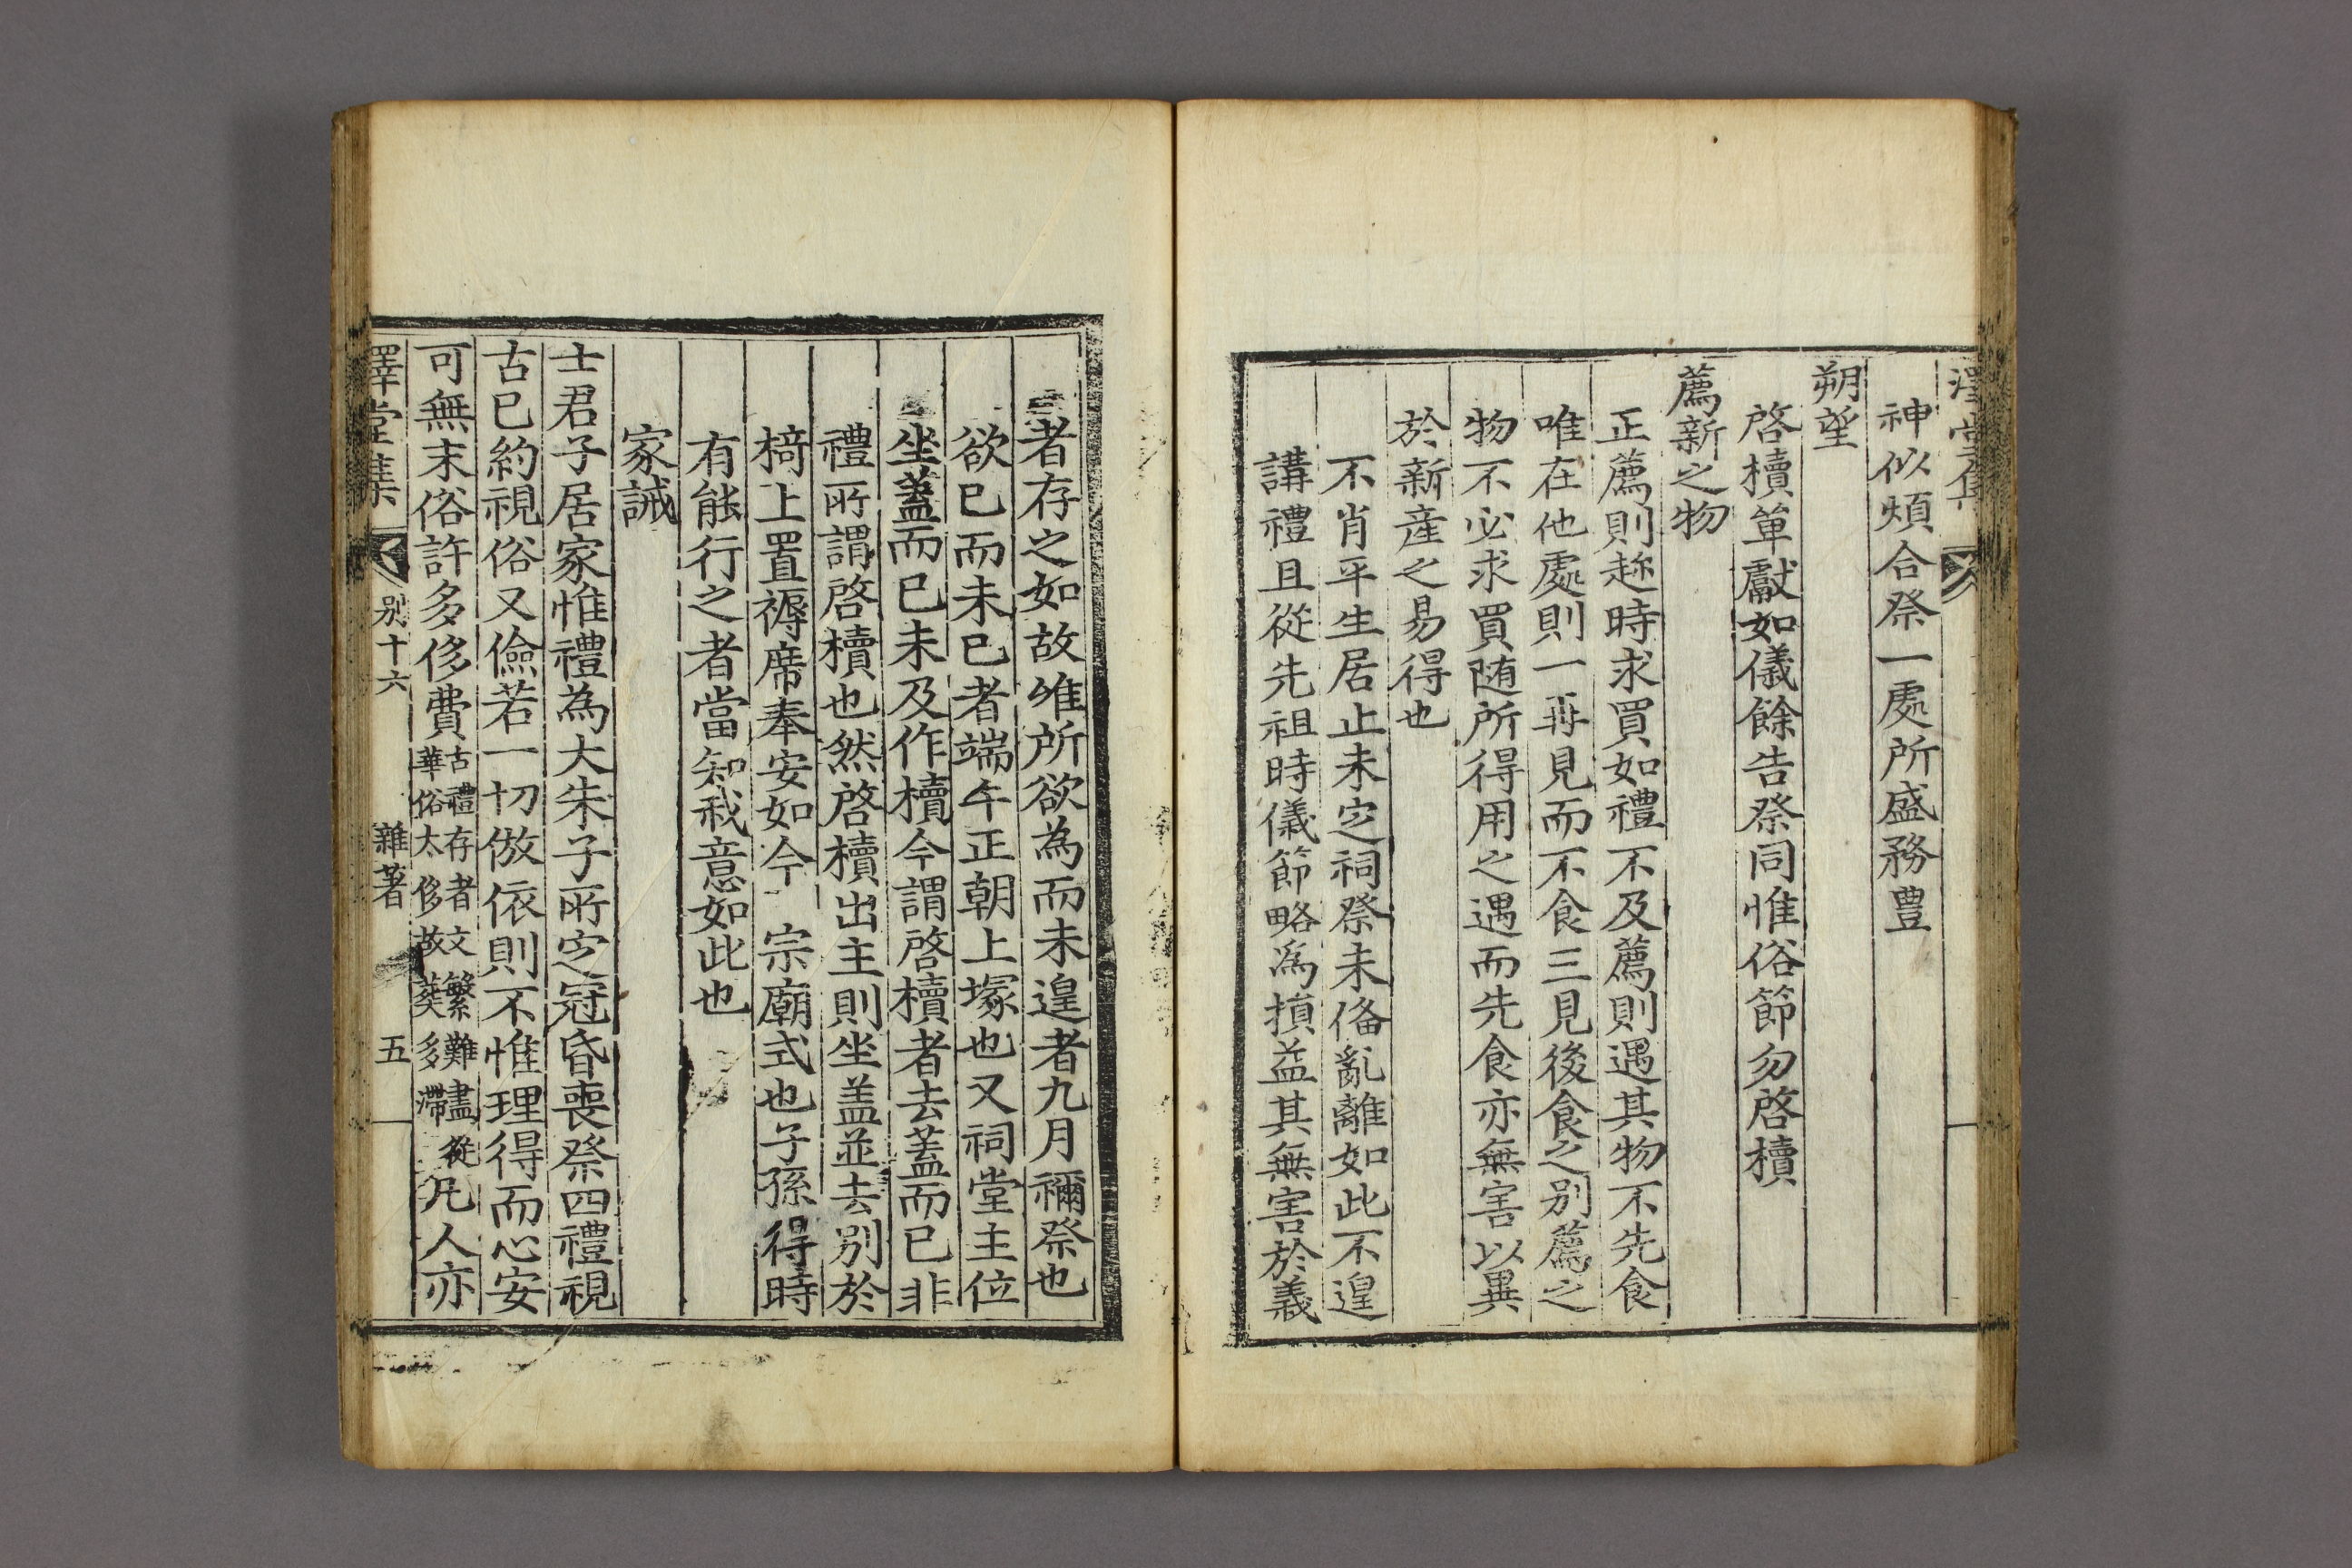 澤堂集
神似煩合祭一處所盛務豊
朔望
啓櫝單獻如儀餘告祭同惟俗節勿啓櫝
薦新之物
正薦則趂時求買如禮不及薦則遇其物不先食
唯在他處則一再見而不食三見後食之别薦之
物不必求買随所得用之遇而先食亦無害以異
於新産之易得也
不肖平生居止未定祠祭未俻亂離如此不遑
講禮且從先祖時儀節略爲損益其無害於義
者存之如故唯所欲為而未遑者九月禰祭也
欲已而未已者端午正朝上塚也又祠堂主位
坐蓋而已未及作櫝今謂啓櫝者去蓋而已非
禮所謂啓櫝也然啓櫝出主則坐盖並去别於
椅上置褥席奉安如今 宗廟式也子孫得時
有能行之者當知我意如此也
家誡
士君子居家惟禮為大朱子所定冠昏喪祭四禮視
古已約視俗又儉若一切倣依則不惟理得而心安
可無末俗許多侈費古禮存者文繁難盡從華俗太侈故葬多滯凡人亦
澤堂集 别十六 雜著 五